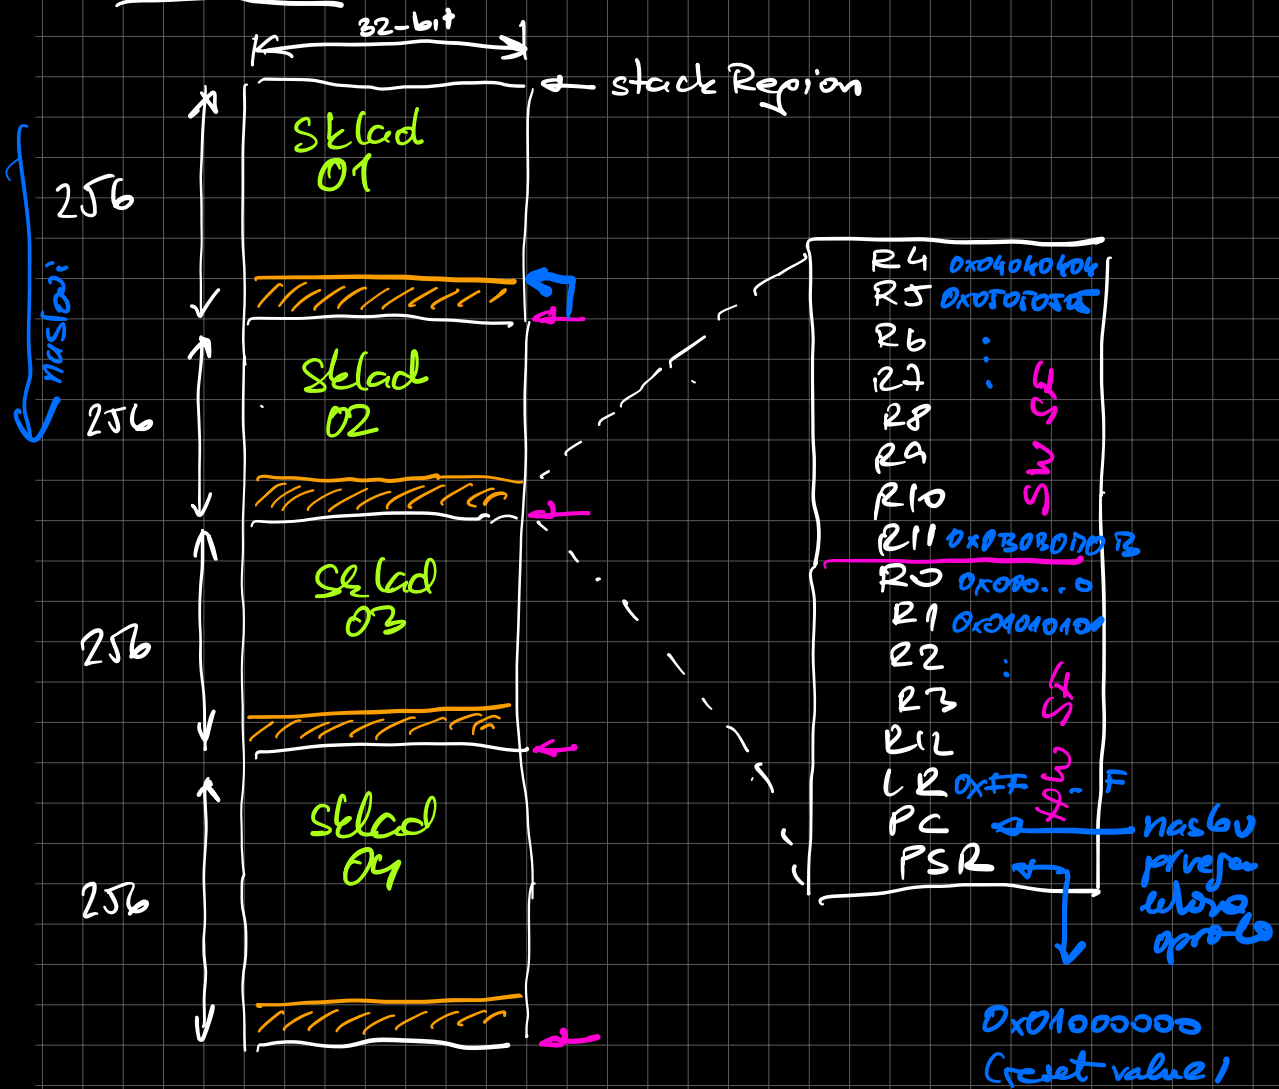 32-bit
stack Region
Sklad
01
256
naslovi
Sklad
02
256
Sklad
03
256
Sklad
04
256
R4 0x04040404
R5 0x05050505
R6
R7
R8
R9
R10
R11 0x0B0B0B0B
SW SF
R0 0x000...0
R1 0x01010101
R2
R3
R12
LR 0xFF .. F
PC
PSR
HW SF
naslov
prvega
ukaza
opravila
0x01000000
(reset value)